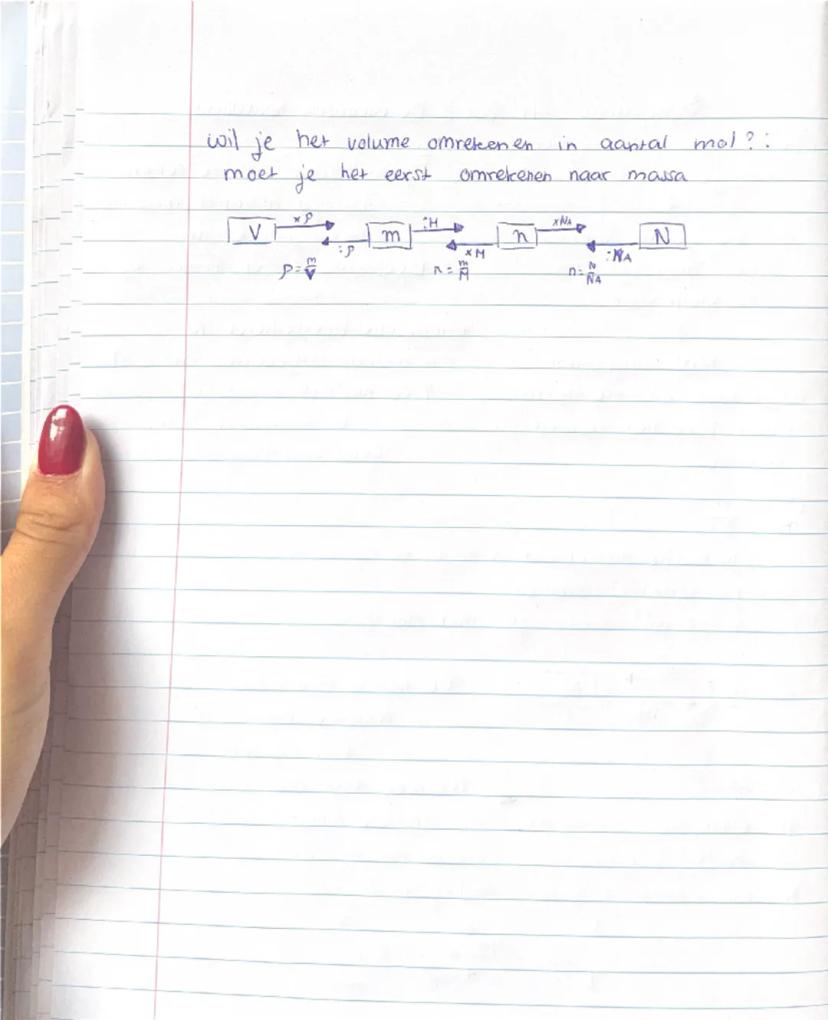 wil je het volume omrekenen in aantal mol?:
moet je het eerst omrekenen naar massa
V ×ρ :ρ m :M ×M n ×NA :NA N
ρ=m/V n=m/M n=N/NA